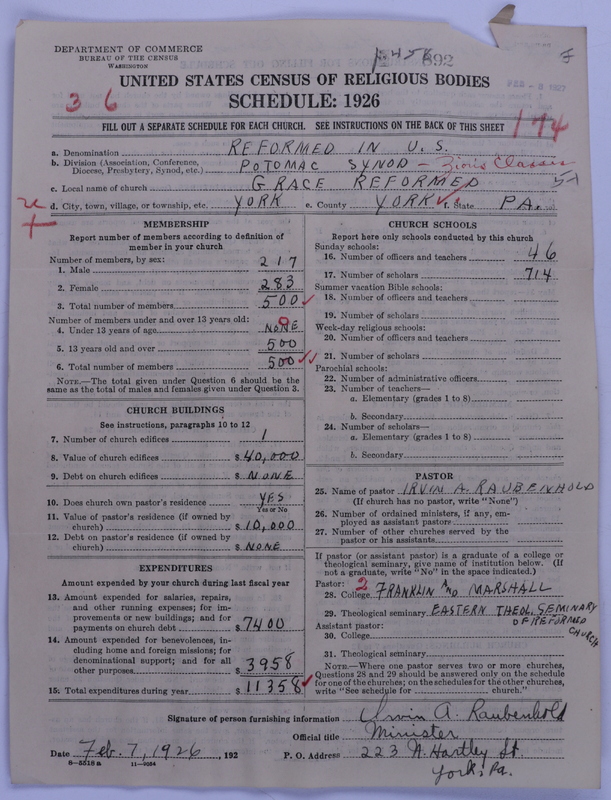 DEPARTMENT OF COMMERCE
BUREAU OF THE CENSUS
WASHINGTON
892
UNITED STATES CENSUS OF RELIGIOUS BODIES
SCHEDULE: 1926
3 6
FILL OUT A SEPARATE SCHEDULE FOR EACH CHURCH. SEE INSTRUCTIONS ON THE BACK OF THIS SHEET
174
a. Denomination REFORMED IN U. S.
b. Division (Association, Conference, Diocese, Presbytery, Synod, etc.) POTOMAC SYNOD - Zion's Classis
c. Local name of church GRACE REFORMED
d. City, town, village, or township, etc. YORK e. County YORK f. State PA.
MEMBERSHIP
Report number of members according to definition of
member in your church
Number of members, by sex:
1. Male 217
2. Female 283
3. Total number of members 500
Number of members under and over 13 years old:
4. Under 13 years of age NONE
5. 13 years old and over 500
6. Total number of members 500
NOTE.—The total given under Question 6 should be the
same as the total of males and females given under Question 3.
CHURCH BUILDINGS
See instructions, paragraphs 10 to 12
7. Number of church edifices 1
8. Value of church edifices $ 40,000
9. Debt on church edifices $ NONE
10. Does church own pastor's residence YES
Yes or No
11. Value of pastor's residence (if owned by
church) $ 10,000
12. Debt on pastor's residence (if owned by
church) $ NONE
EXPENDITURES
Amount expended by your church during last fiscal year
13. Amount expended for salaries, repairs,
and other running expenses; for im-
provements or new buildings; and for
payments on church debt $ 7400
14. Amount expended for benevolences, in-
cluding home and foreign missions; for
denominational support; and for all
other purposes $ 3958
15. Total expenditures during year $ 11358
CHURCH SCHOOLS
Report here only schools conducted by this church
Sunday schools:
16. Number of officers and teachers 46
17. Number of scholars 714
Summer vacation Bible schools:
18. Number of officers and teachers
19. Number of scholars
Week-day religious schools:
20. Number of officers and teachers
21. Number of scholars
Parochial schools:
22. Number of administrative officers
23. Number of teachers—
a. Elementary (grades 1 to 8)
b. Secondary
24. Number of scholars—
a. Elementary (grades 1 to 8)
b. Secondary
PASTOR
25. Name of pastor IRVIN A. RAUBENHOLD
(If church has no pastor, write "None")
26. Number of ordained ministers, if any, em-
ployed as assistant pastors
27. Number of other churches served by the
pastor or his assistants
If pastor (or assistant pastor) is a graduate of a college or
theological seminary, give name of institution below. (If
not a graduate, write "No" in the space indicated.)
Pastor: 2
28. College FRANKLIN AND MARSHALL
29. Theological seminary EASTERN THEOL. SEMINARY
OF REFORMED
CHURCH
Assistant pastor:
30. College
31. Theological seminary
NOTE.—Where one pastor serves two or more churches,
Questions 28 and 29 should be answered only on the schedule
for one of the churches; on the schedules for the other churches,
write "See schedule for church."
Signature of person furnishing information Irvin A. Raubenhold
Official title Minister
Date Feb. 7, 1926, 192 P. O. Address 223 N. Hartley St.
York, Pa.
8—5518 a 11—9034